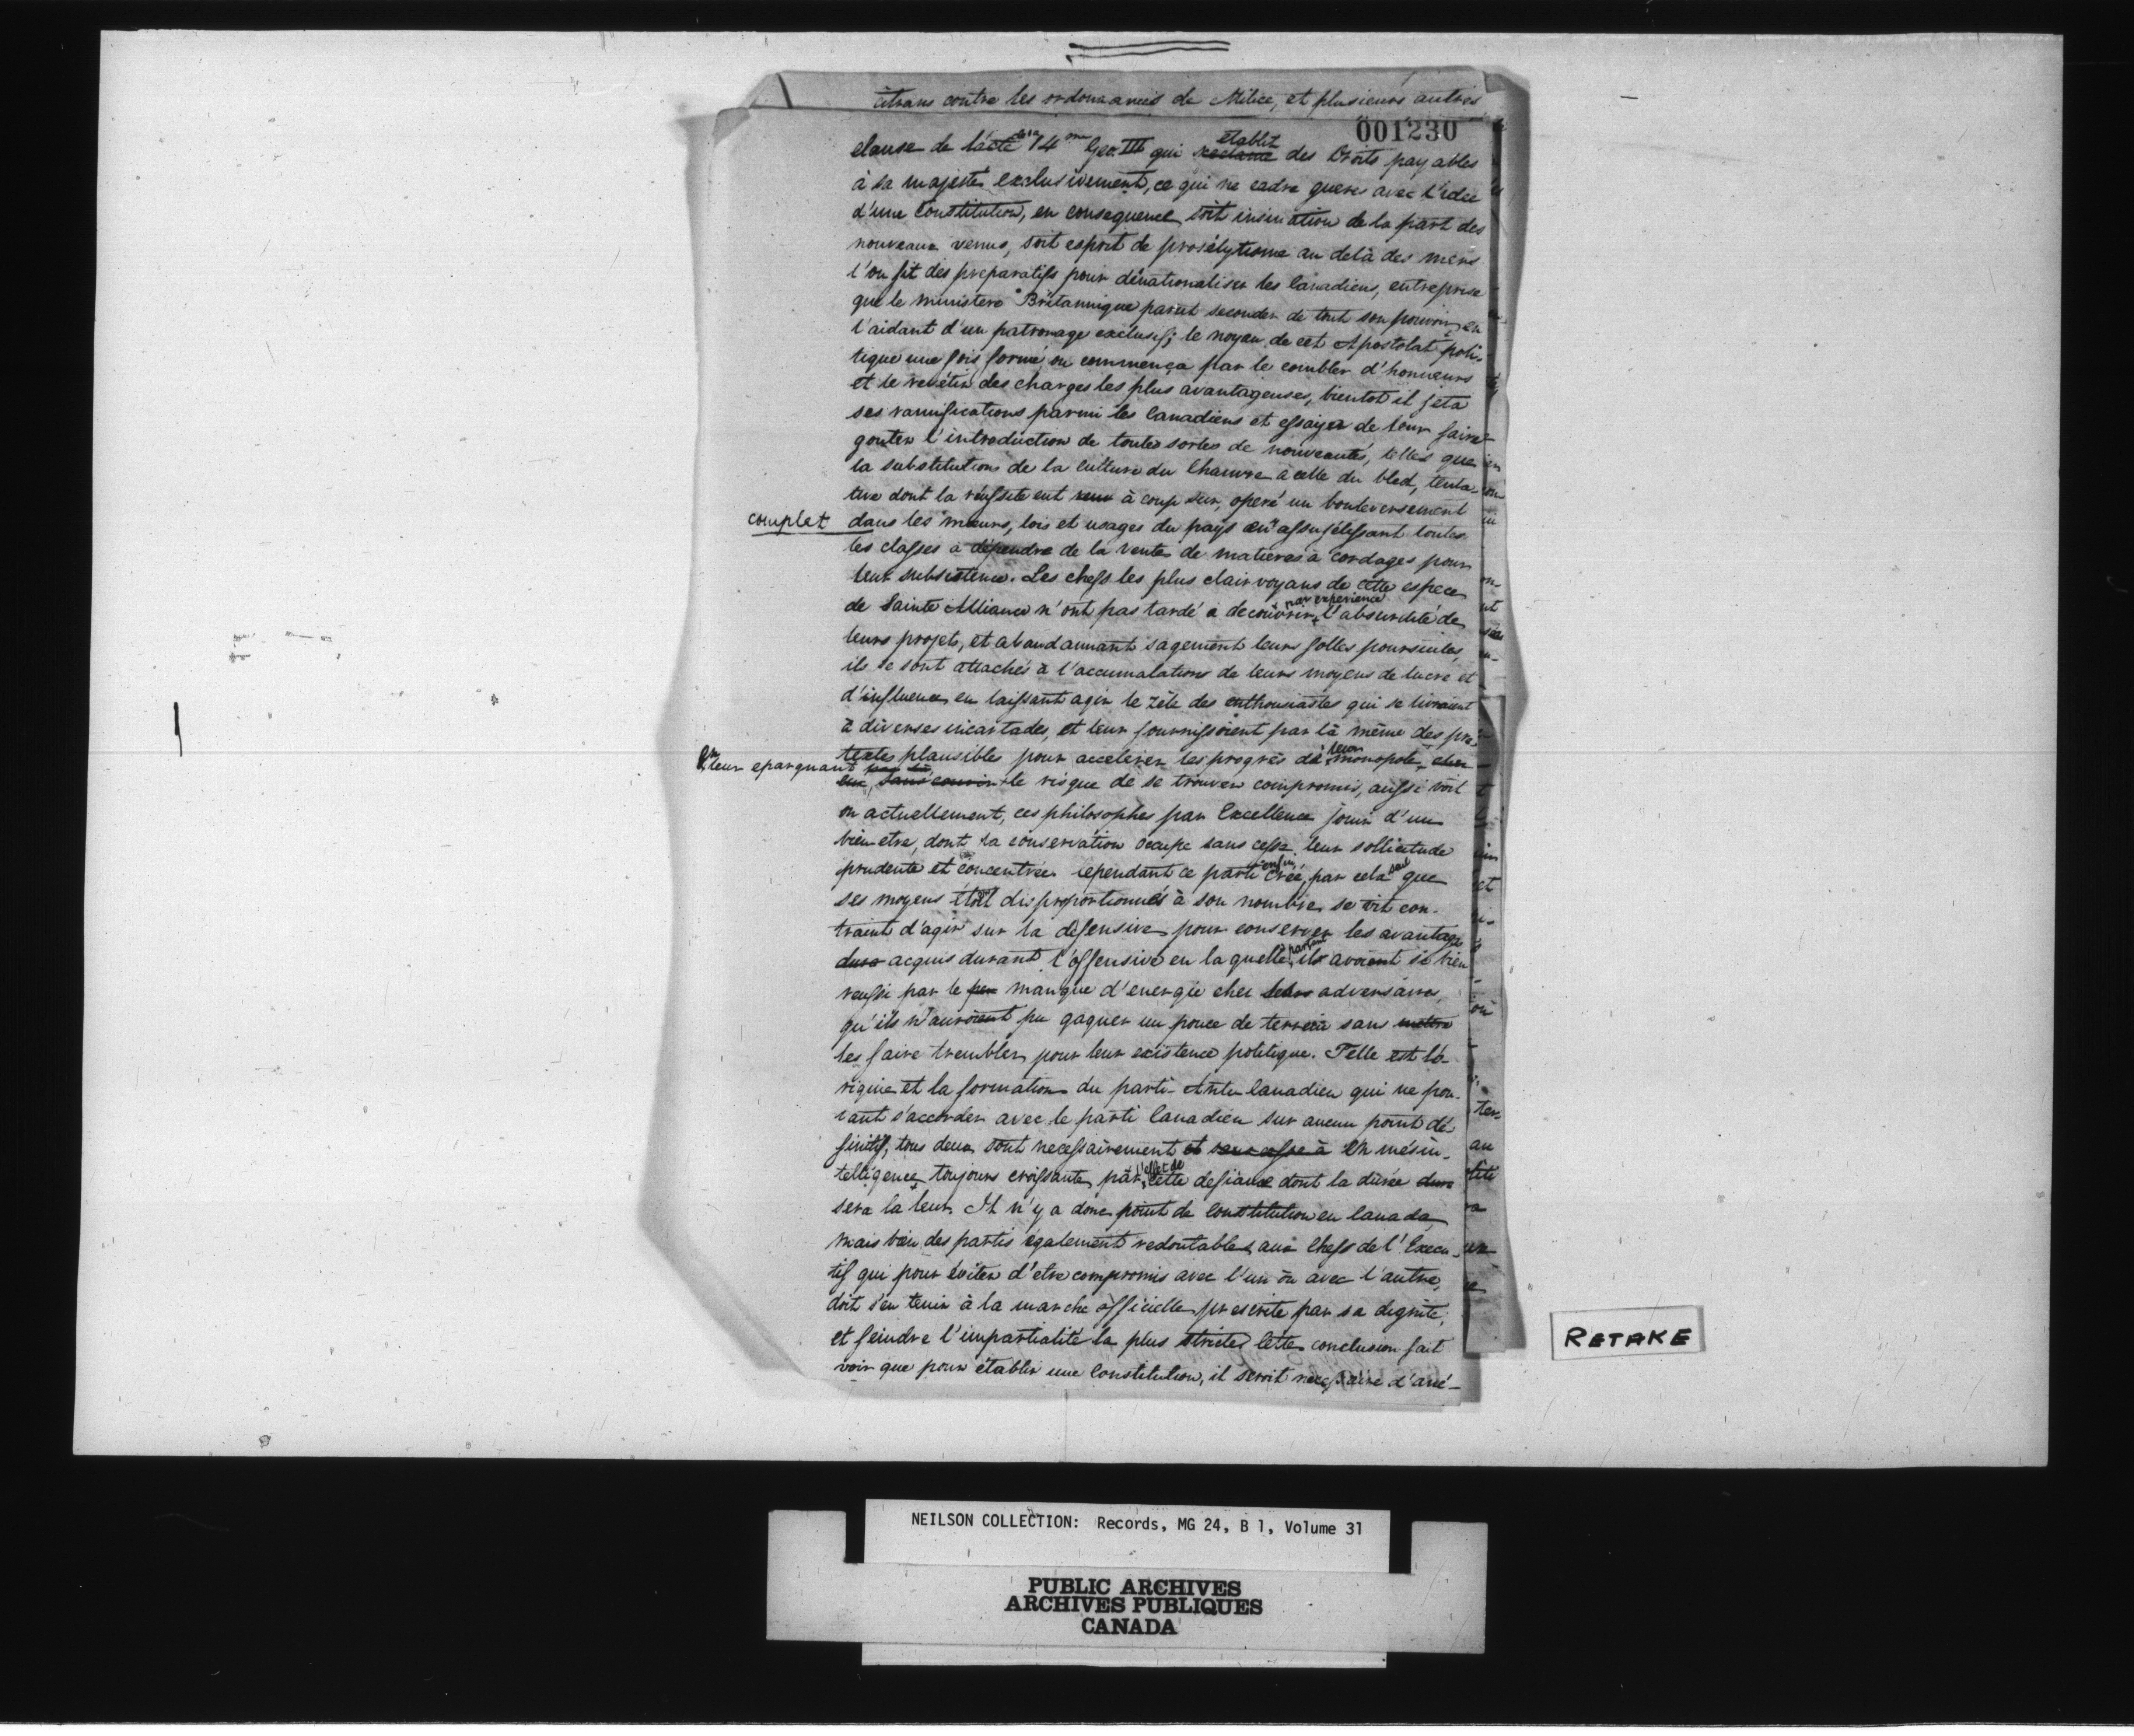 citrans contre les ordonnances de Milice, et plusieurs autres
001230
clause de l'acte de la 14me Geo. III qui établit des Droits payables
à sa majesté exclusivement, ce qui ne cadre guere avec l'idée
d'une Constitution, en consequence soit insinuation de la part des
nouveaux venus, soit esprit de prosélytisme au delà des mers
l'on fit des preparatifs pour dénationaliser les Canadiens, entreprise
que le ministere Britannique parut seconder de tout son pouvoir, en
l'aidant d'un patronage exclusif; le noyau de cet Apostolat poli-
tique une fois formé on commença par le combler d'honneurs
et le revêtir des charges les plus avantageuses, bientot il jeta
ses ramifications parmi les Canadiens et essaya de leur faire
gouter l'introduction de toutes sortes de nouveautés, telles que
la substitution de la culture du Chanvre à celle du bled, tenta-
tive dont la réussite eut à coup sur, operé un bouleversement
complet dans les mœurs, lois et usages du pays en assujétissant toutes
les classes à dépendre de la vente de matieres à cordages pour
leur subsistence. Les chefs les plus clairvoyans de cette espece
de Sainte Alliance n'ont pas tardé a decouvrir par experience l'absurdité de
leurs projets, et abandannant sagement leurs folles poursuites,
ils se sont attachés à l'accumalation de leurs moyens de lucre et
d'influence en laissant agir le zèle des enthousiastes qui se livraient
à diverses incartades, et leur fournissoient par là même des pré-
textes plausibles pour accelérer les progrès de leur monopole,
En leur epargnant le risque de se trouver compromis, aussi voit
on actuellement, ces philosophes par Excellence jouir d'un
bien etre, dont la conservation occupe sans cesse leur sollicitude
prudente et concentrée. Cependant ce parti enfin créé, par cela seul que
ses moyens étoit disproportionnés à son nombre, se vit con-
traint d'agir sur la défensive pour conserver les avantages
dura acquis durant l'offensive en laquelle, partant ils avoient si bien
reussi par le manque d'energie chez leurs adversaires,
qu'ils n'auroient pu gagner un pouce de terrein sans mettre
les faire trembler pour leur existence politique. Telle est l'o-
rigine et la formation du parti Anti Canadien qui ne pou-
vant s'accorder avec le parti Canadien sur aucun point dé-
finitif, tous deux sont necessairement en mésin-
telligence toujours croissante, par l'effet de cette defiance dont la durée dura
sera la leur. Il n'y a donc point de constitution en Canada,
mais bien des partis également redoutables aux Chefs de l'Execu-
tif qui pour éviter d'etre compromis avec l'un ou avec l'autre,
doit s'en tenir à la marche officielle prescrite par sa dignité,
et feindre l'impartialité la plus stricte. Cette conclusion fait
voir que pour établir une Constitution, il seroit necessaire d'ané-
RETAKE
NEILSON COLLECTION: Records, MG 24, B 1, Volume 31
PUBLIC ARCHIVES
ARCHIVES PUBLIQUES
CANADA